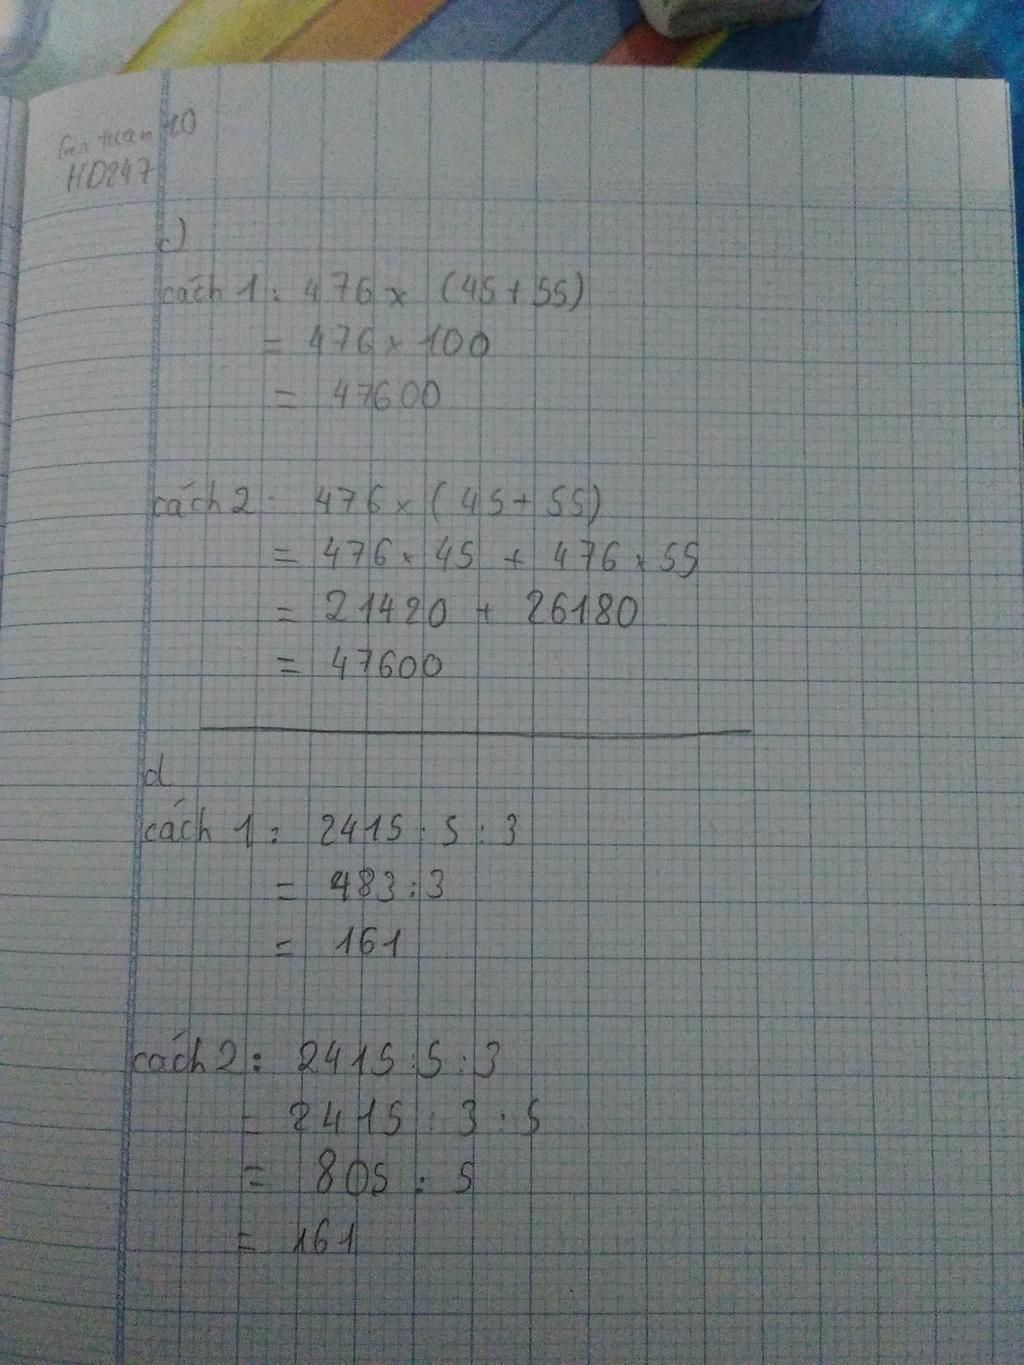 tuan 10
HD247
c)
cách 1: 476 x (45 + 55)
= 476 x 100
= 47600
cách 2: 476 x (45 + 55)
= 476 x 45 + 476 x 55
= 21420 + 26180
= 47600
d
cách 1: 2415 : 5 : 3
= 483 : 3
= 161
cách 2: 2415 : 5 : 3
= 2415 : 3 : 5
= 805 : 5
= 161